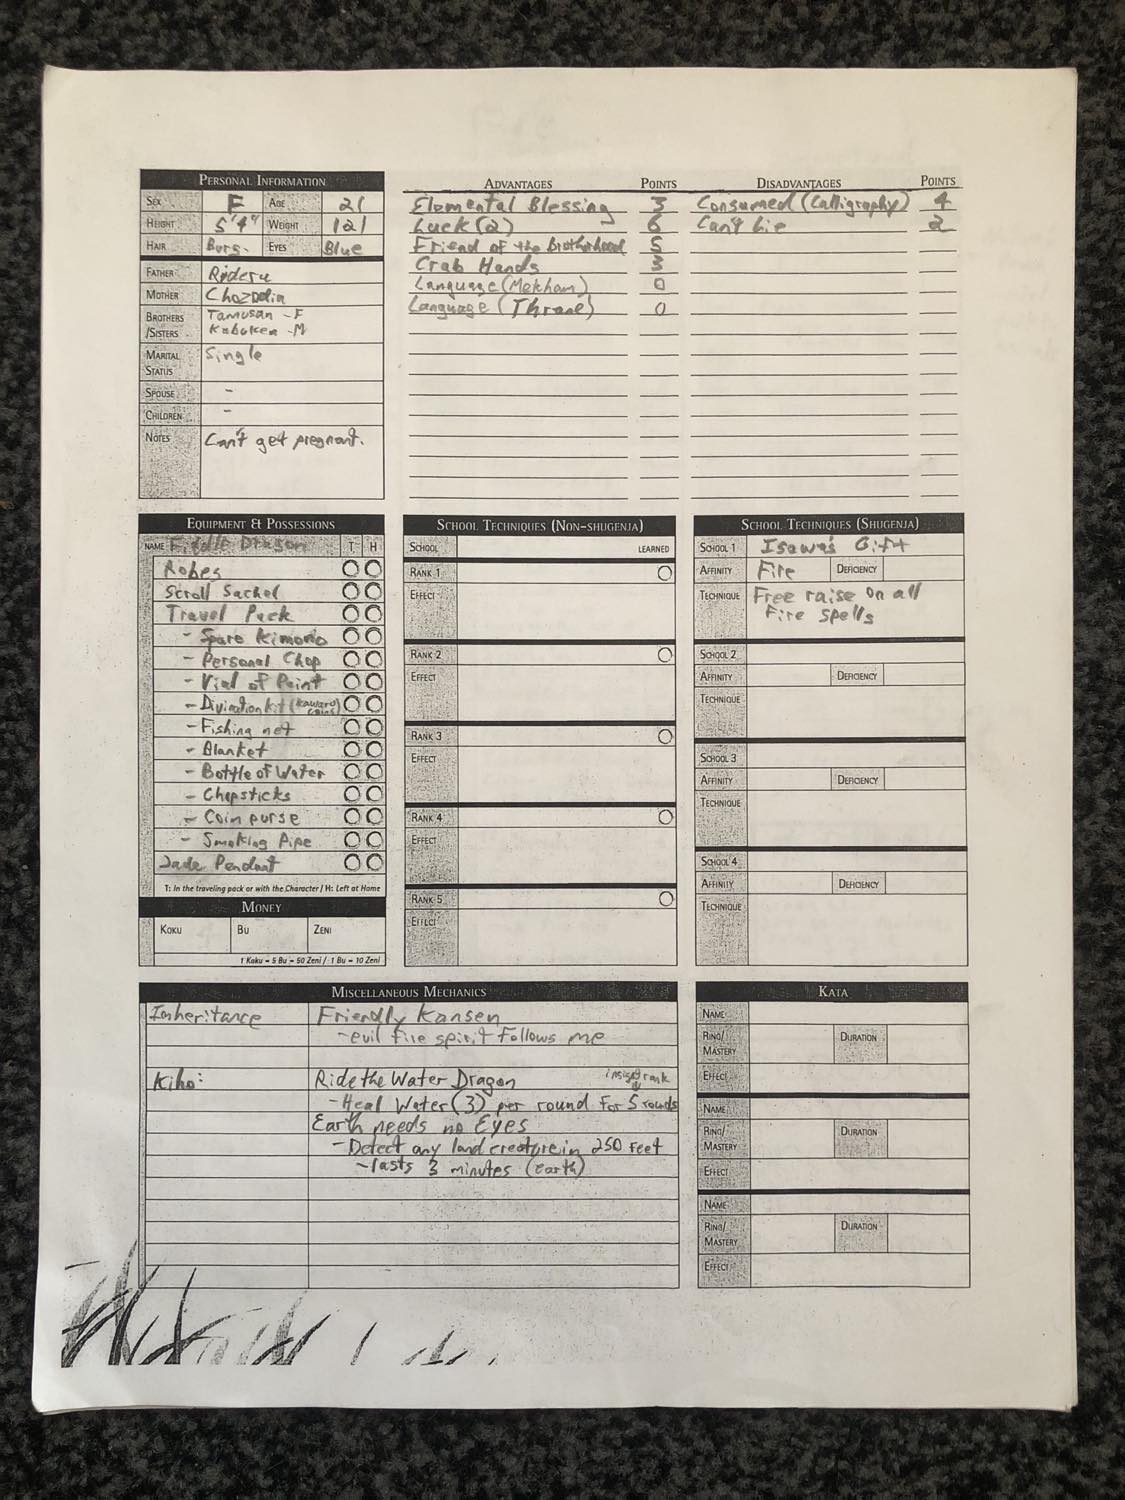 PERSONAL INFORMATION
SEX F AGE 21
HEIGHT 5'4" WEIGHT 121
HAIR Burg. EYES Blue
FATHER Rideru
MOTHER Chozodia
BROTHERS /SISTERS Tamusan -F
Kabuken -M
MARITAL STATUS Single
SPOUSE -
CHILDREN -
NOTES Can't get pregnant.
ADVANTAGES POINTS
Elemental Blessing 3
Luck (2) 6
Friend of the Brotherhood 5
Crab Hands 3
Language (Mekham) 0
Language (Thrane) 0
DISADVANTAGES POINTS
Consumed (Calligraphy) 4
Can't Lie 2
EQUIPMENT & POSSESSIONS
NAME Dragon T H
Robes
Scroll Sachel
Travel Pack
- Spare Kimono
- Personal Chop
- Vial of Paint
- Divination kit (kawaru coins)
- Fishing net
- Blanket
- Bottle of Water
- Chopsticks
- Coin purse
- Smoking Pipe
Jade Pendant
T: In the traveling pack or with the Character / H: Left at Home
MONEY
KOKU BU ZENI
1 Koku = 5 Bu = 50 Zeni / 1 Bu = 10 Zeni
SCHOOL TECHNIQUES (NON-SHUGENJA)
SCHOOL LEARNED
RANK 1
EFFECT
RANK 2
EFFECT
RANK 3
EFFECT
RANK 4
EFFECT
RANK 5
EFFECT
SCHOOL TECHNIQUES (SHUGENJA)
SCHOOL 1 Isawa's Gift
AFFINITY Fire DEFICIENCY
TECHNIQUE Free raise on all
Fire spells
SCHOOL 2
AFFINITY DEFICIENCY
TECHNIQUE
SCHOOL 3
AFFINITY DEFICIENCY
TECHNIQUE
SCHOOL 4
AFFINITY DEFICIENCY
TECHNIQUE
MISCELLANEOUS MECHANICS
Inheritance Friendly Kansen
- evil fire spirit follows me
Kiho: Ride the Water Dragon insight rank
- Heal Water (3) per round for 5 rounds
Earth needs no Eyes
- Detect any land creature in 250 feet
- lasts 3 minutes (earth)
KATA
NAME
RING/ MASTERY DURATION
EFFECT
NAME
RING/ MASTERY DURATION
EFFECT
NAME
RING/ MASTERY DURATION
EFFECT